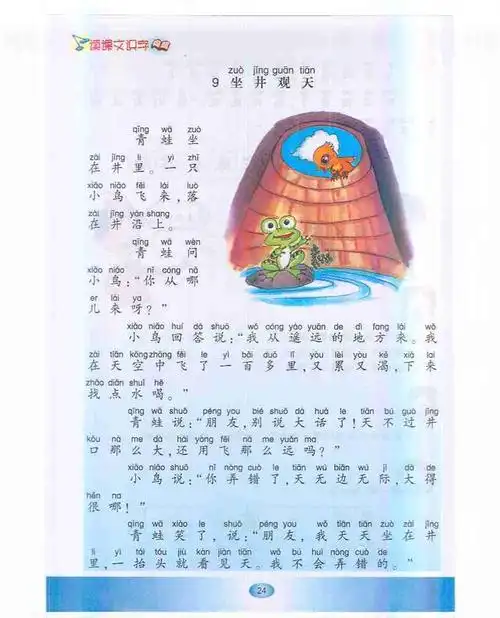 读课文识字
zuò jǐng guān tiān
9 坐 井 观 天
qīng wā zuò
青 蛙 坐
zài jǐng li yì zhī
在 井 里。一 只
xiǎo niǎo fēi lái luò
小 鸟 飞 来，落
zài jǐng yán shang
在 井 沿 上。
qīng wā wèn
青 蛙 问
xiǎo niǎo nǐ cóng nǎ
小 鸟：“你 从 哪
er lái ya
儿 来 呀？”
xiǎo niǎo huí dá shuō wǒ cóng yáo yuǎn de dì fang lái wǒ
小 鸟 回 答 说：“我 从 遥 远 的 地 方 来。我
zài tiān kōngzhōng fēi le yì bǎi duō lǐ yòu lèi yòu kě xià lai
在 天 空 中 飞 了 一 百 多 里，又 累 又 渴，下 来
zhǎo diǎn shuǐ hē
找 点 水 喝。”
qīng wā shuō péng you bié shuō dà huà le tiān bú guò jǐng
青 蛙 说：“朋 友，别 说 大 话 了！天 不 过 井
kǒu nà me dà hái yòng fēi nà me yuǎn ma
口 那 么 大，还 用 飞 那 么 远 吗？”
xiǎo niǎo shuō nǐ nòng cuò le tiān wú biān wú jì dà de
小 鸟 说：“你 弄 错 了，天 无 边 无 际，大 得
hěn na
很 哪！”
qīng wā xiào le shuō péng you wǒ tiān tiān zuò zài jǐng
青 蛙 笑 了，说：“朋 友，我 天 天 坐 在 井
li yì tái tóu jiù kàn jiàn tiān wǒ bú huì nòng cuò de
里，一 抬 头 就 看 见 天。我 不 会 弄 错 的。”
24